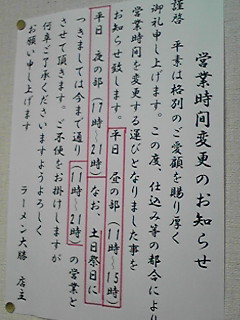 営業時間変更のお知らせ
謹啓 平素は格別のご愛顧を賜り厚く
御礼申し上げます。この度、仕込み等の都合により
営業時間を変更する運びとなりました事を
お知らせ致します。平日 昼の部(11時~15時
平日 夜の部(17時~21時)なお、土日祭日に
つきましては今まで通り(11時~21時)の営業と
させて頂きます。ご不便をお掛けしますが
何卒ご了承くださいますようよろしく
お願い申し上げます
ラーメン大勝 店主